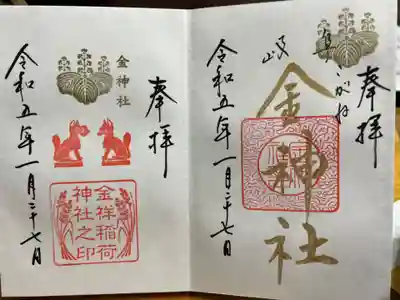 奉拝
こがね
金神社
岐
令和五年一月二十七日
奉拝
金神社
金祥稲荷
神社之印
令和五年一月二十七日